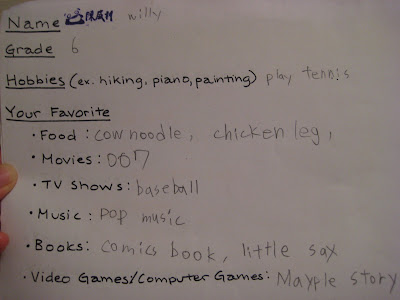 Name willy
Grade 6
Hobbies (ex. hiking, piano, painting) play tennis
Your Favorite
• Food : cow noodle, chicken leg,
• Movies : 007
• TV Shows : baseball
• Music : pop music
• Books : comics book, little sax
• Video Games/Computer Games: Mayple story